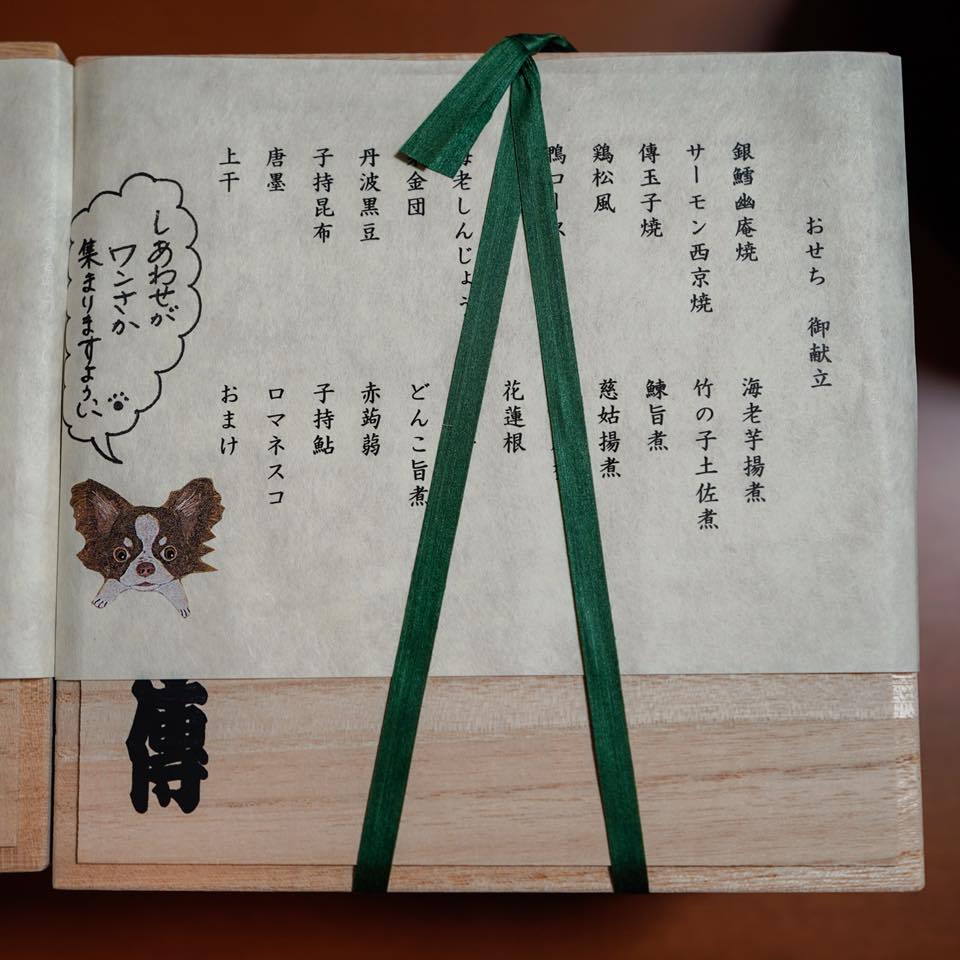 おせち 御献立
銀鱈幽庵焼
サーモン西京焼
傳玉子焼
鶏松風
鴨ロース
海老しんじょう
金団
丹波黒豆
子持昆布
唐墨
上干
海老芋揚煮
竹の子土佐煮
鰊旨煮
慈姑揚煮
花蓮根
どんこ旨煮
赤蒟蒻
子持鮎
ロマネスコ
おまけ
しあわせが
ワンさか
集まりますように
傳